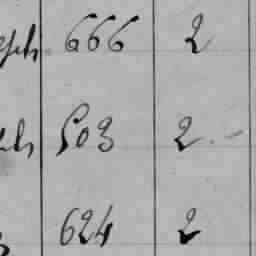 666 2
503 2.-
624 2